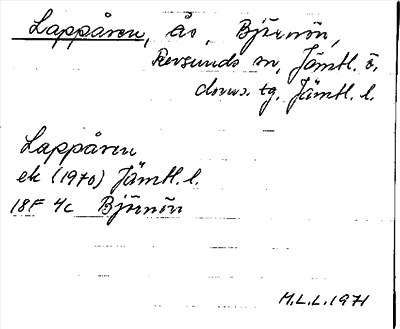 Lappåren, ås, Björnön,
Revsunds sn, Jämtl. ö.
doms. tg, Jämtl. l.
Lappåren
ek (1970) Jämtl. l.
18F 4c Björnön
M.L.L. 1971